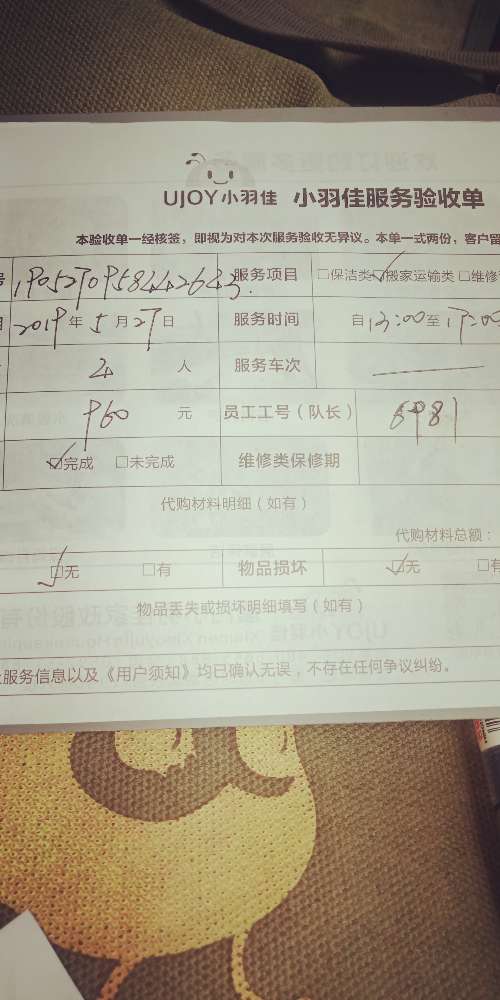 UJOY小羽佳 小羽佳服务验收单
本验收单一经核签，即视为对本次服务验收无异议。本单一式两份，客户留
号 服务项目 □保洁类 ☑搬家运输类 □维修
2019年5月27日 服务时间 自13:00至17:00
人 服务车次
960 元 员工工号（队长） 6981
☑完成 □未完成 维修类保修期
代购材料明细（如有）
代购材料总额：
☑无 □有 物品损坏 ☑无 □有
物品丢失或损坏明细填写（如有）
服务信息以及《用户须知》均已确认无误，不存在任何争议纠纷。